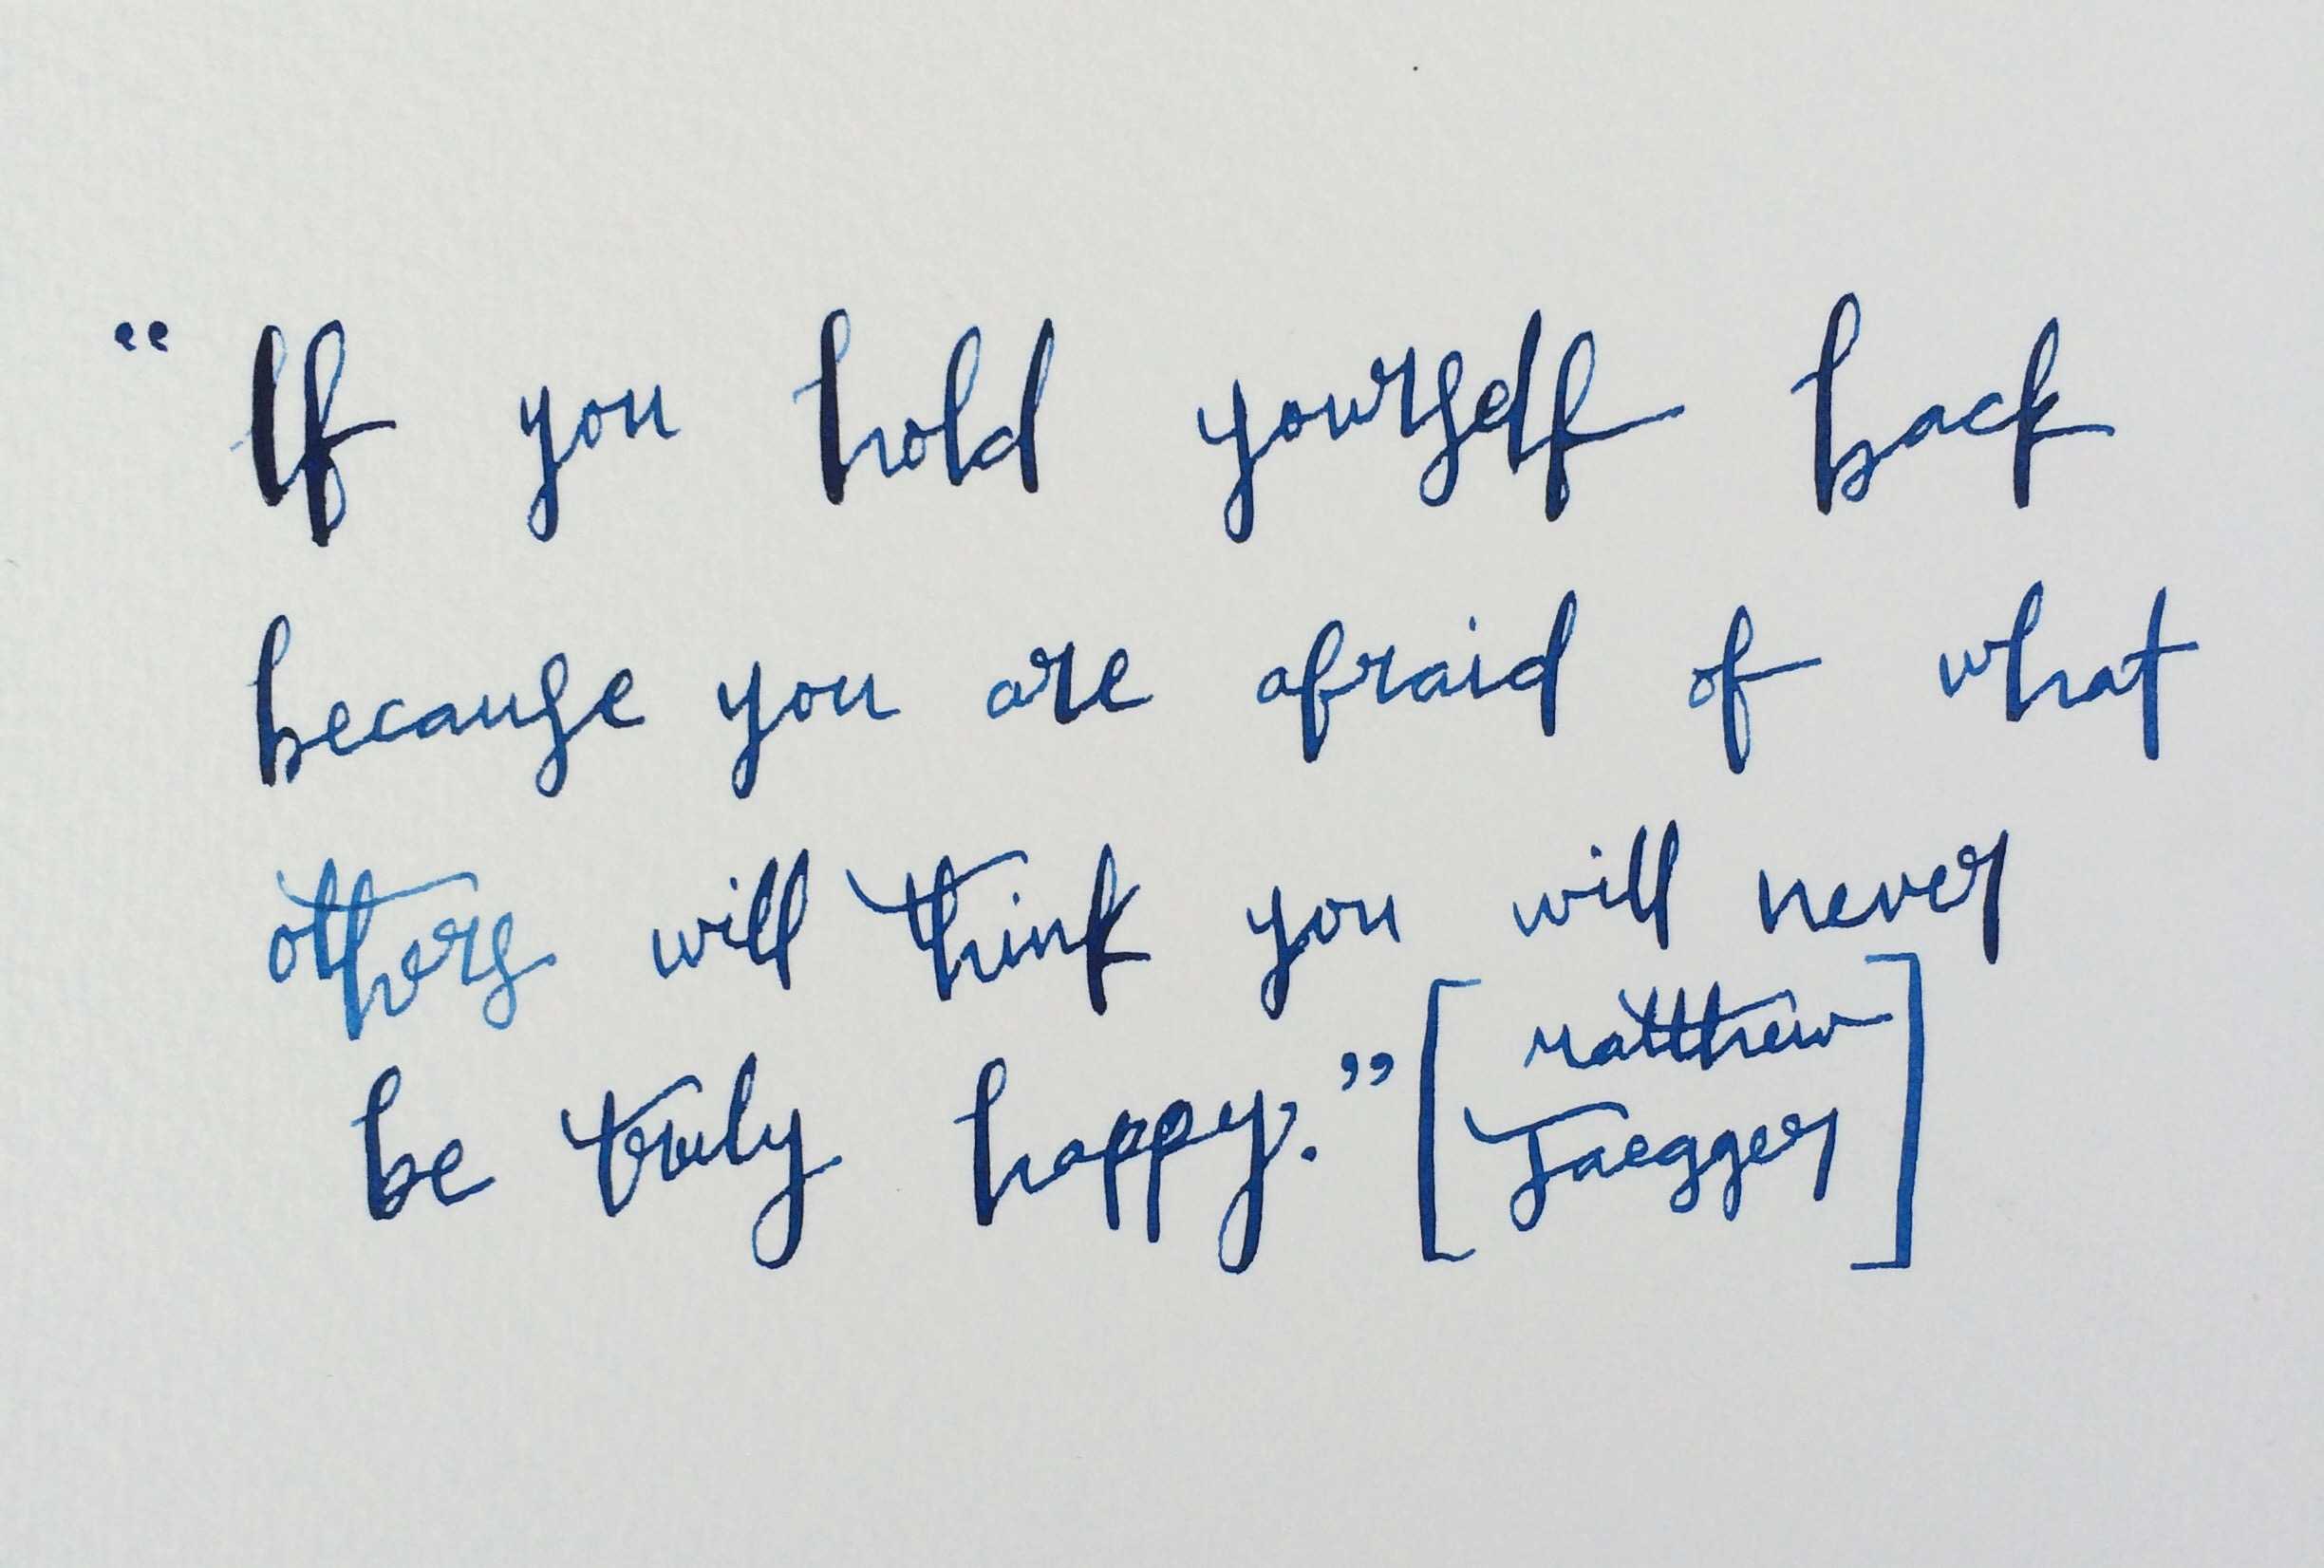 “If you hold yourself back
because you are afraid of what
others will think you will never
be truly happy.” [matthew
Jaegger]